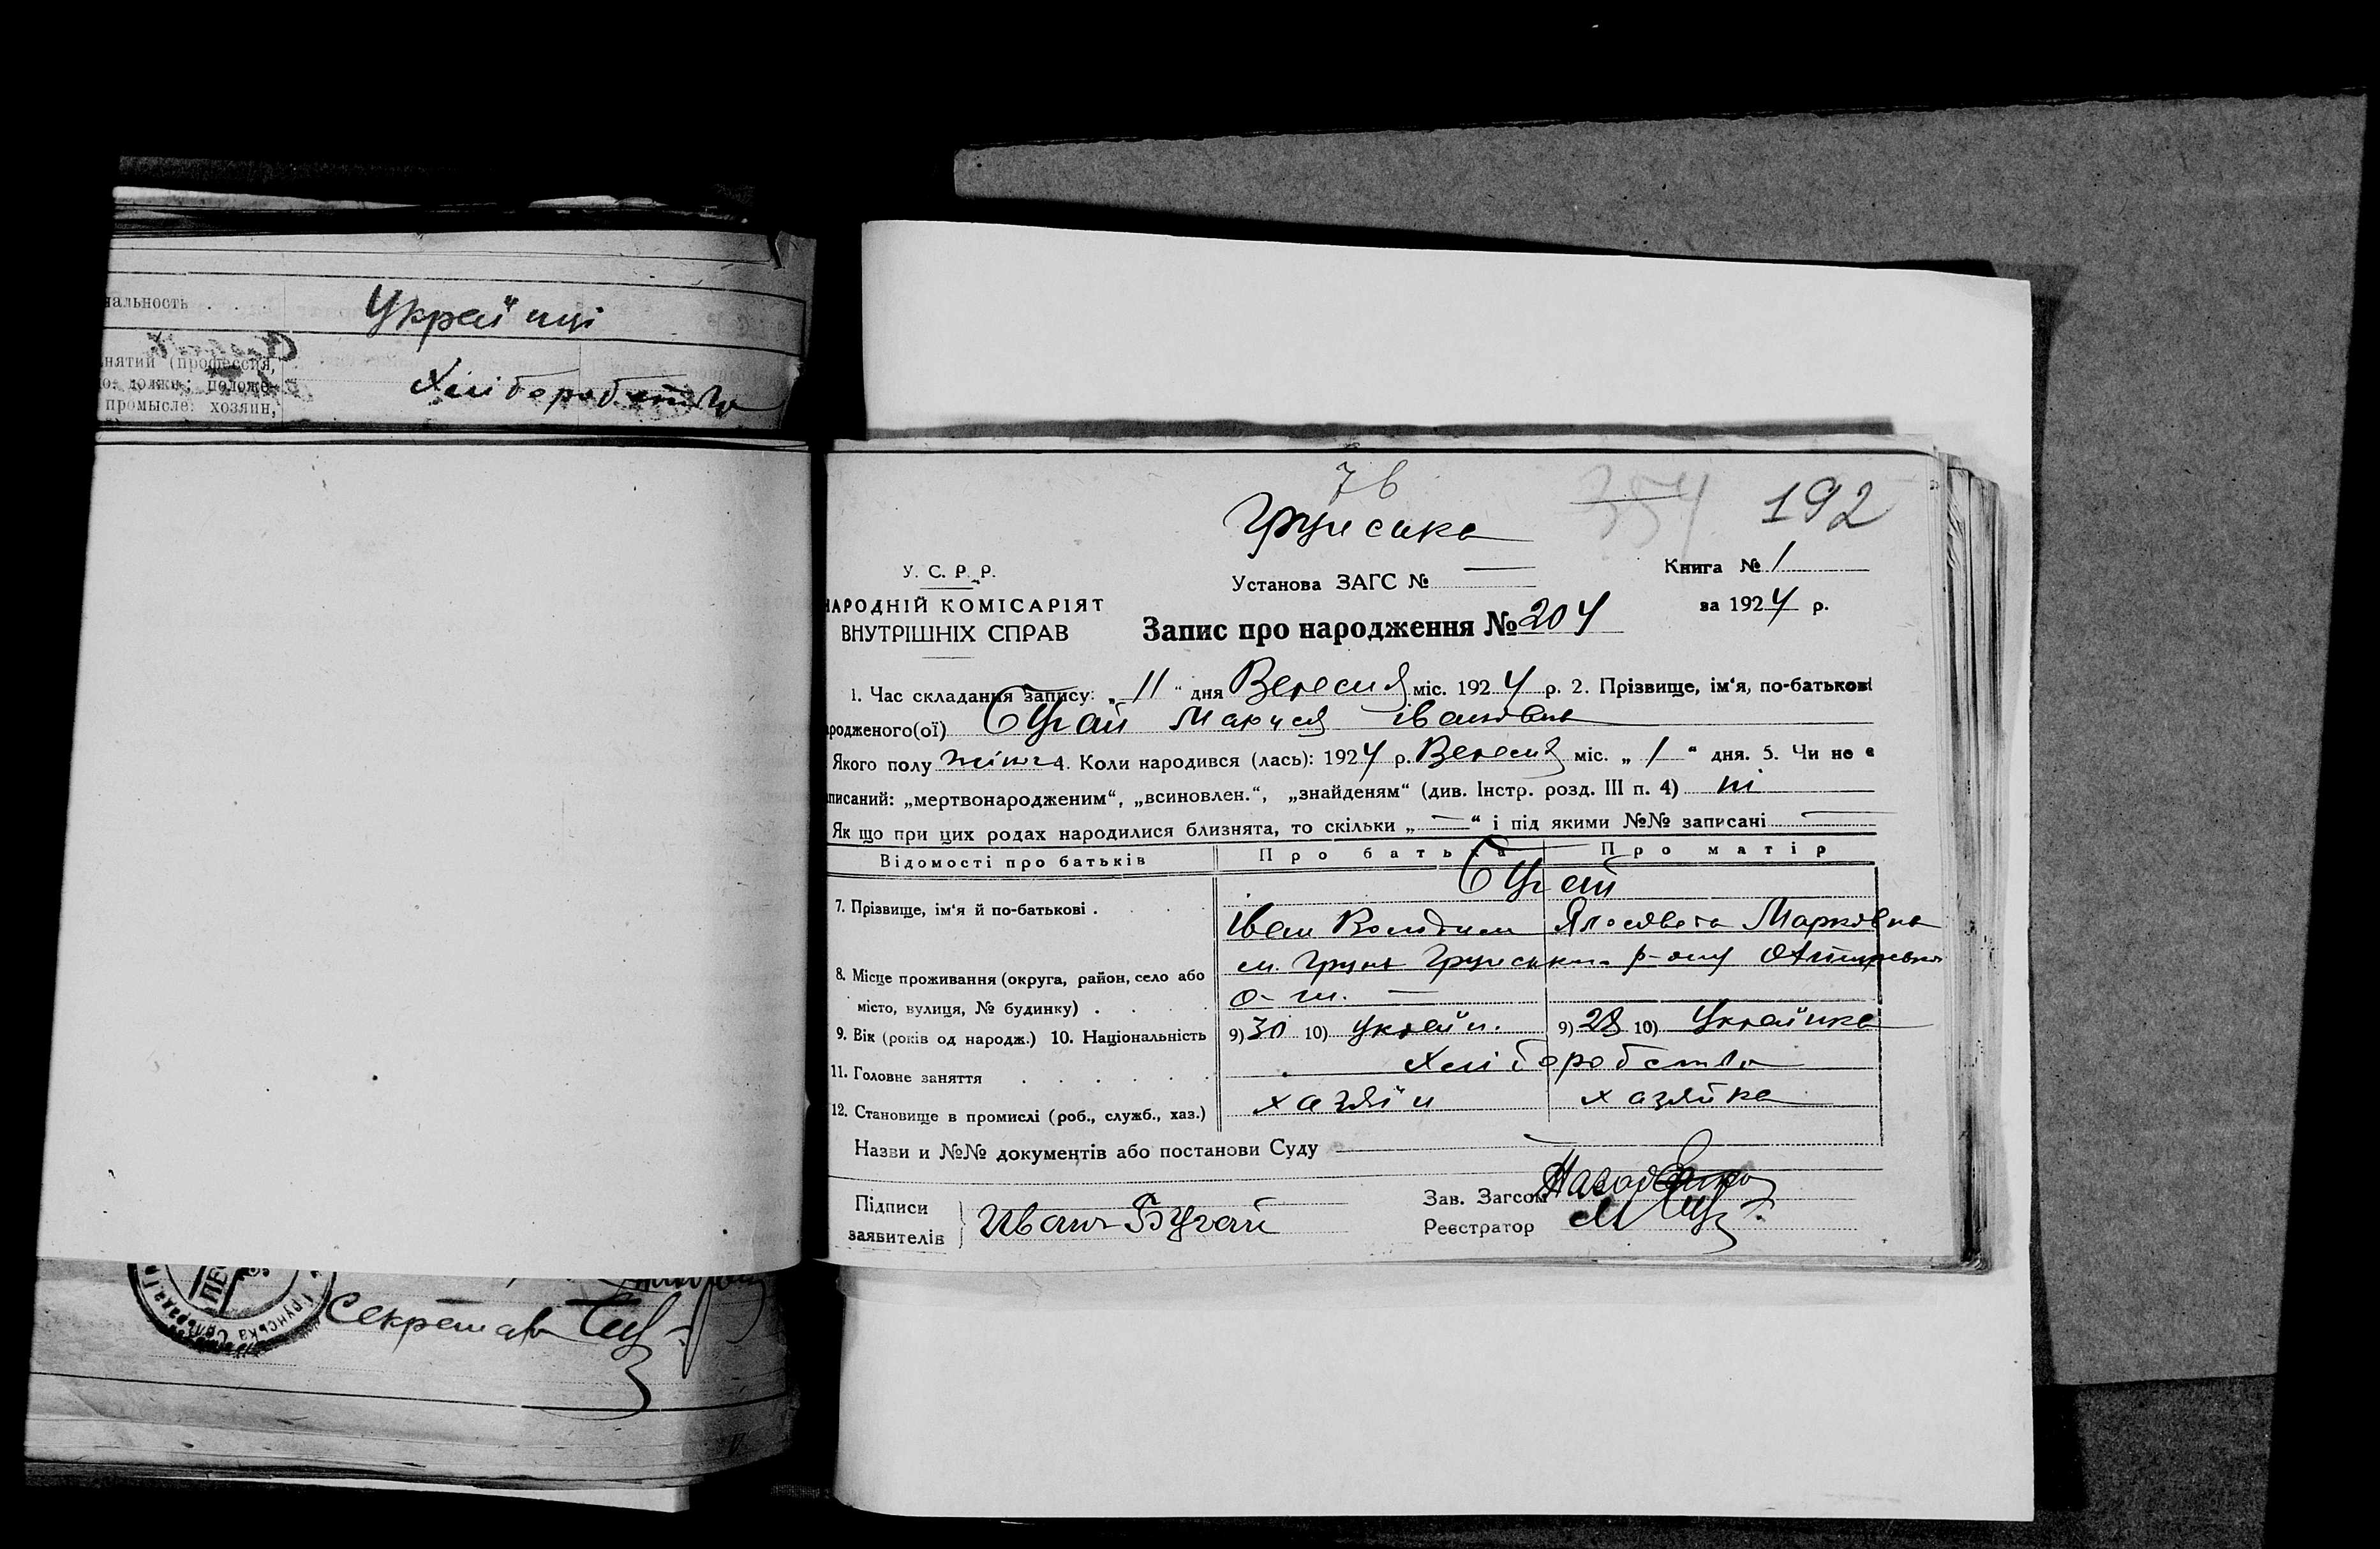 нальность . . .
Українці
нятий (профессия,
о. должн; положе-
промысле: хозяин,
Хліборобство
Секретар
Грунська Сільрада
7 в
Грунська
354
192
У. С. Р. Р.
НАРОДНІЙ КОМІСАРІЯТ
ВНУТРІШНІХ СПРАВ
Установа ЗАГС № —
Книга № 1
за 1924 р.
Запис про народження № 204
1. Час складання запису: „ 11 “ дня Вересня міс. 1924 р. 2. Прізвище, ім‘я, по-батькові
родженого(ої) Бугай Маруся Івановна
Якого полу жіноч 4. Коли народився (лась): 1924 р. Вересня міс. „ 1 “ дня. 5. Чи не є
писаний: „мертвонародженим“, „всиновлен.“, „знайденям“ (див. Інстр. розд. III п. 4) ні
Як що при цих родах народилися близнята, то скільки „ — “ і під якими №№ записані —
Відомості про батьків Про батька Про матір
Бугай
7. Прізвище, ім‘я й по-батькові . Іван Володим Ялосовета Марковна
8. Місце проживання (округа, район, село або м. Грунь Грунського р-ону Охтирської
місто, вулиця, № будинку) . о-ги. —
9. Вік (років од народж.) 10. Національність 9) 30 10) Україн. 9) 28 10) Українка
11. Головне заняття Хліборобство
12. Становище в промислі (роб., служб., хаз.) хазяїн хазяйка
Назви и №№ документів або постанови Суду —
Підписи
заявителів
Иван Бугай
Зав. Загсом
Реєстратор